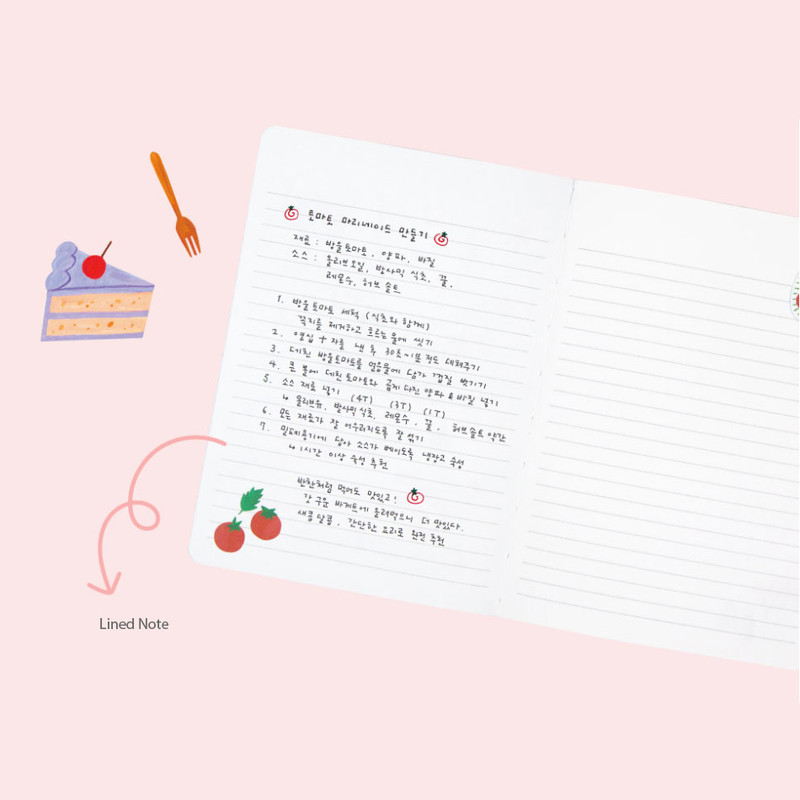 토마토 마리네이드 만들기
재료 : 방울토마토, 양파, 바질
소스 : 올리브오일, 발사믹 식초, 꿀,
레몬수, 허브 솔트
1. 방울토마토 세척 (식초와 함께)
꼭지를 제거하고 흐르는 물에 씻기
2. 열십 十자를 낸 후 30초~1분 정도 데쳐주기
3. 데친 방울토마토를 얼음물에 담가 껍질 벗기기
4. 큰 볼에 데친 토마토와 곱게 다진 양파 & 바질 넣기
5. 소스 재료 넣기 (4T) (3T) (1T)
↳ 올리브유, 발사믹 식초, 레몬수, 꿀, 허브솔트 약간
6. 모든 재료가 잘 어우러지도록 잘 섞기
7. 밀폐용기에 담아 소스가 베이도록 냉장고 숙성
↳ 1시간 이상 숙성 추천
반찬처럼 먹어도 맛있고!
갓 구운 바게트에 올려먹으니 더 맛있다.
새콤달콤, 간단한 요리로 완전 추천
Lined Note